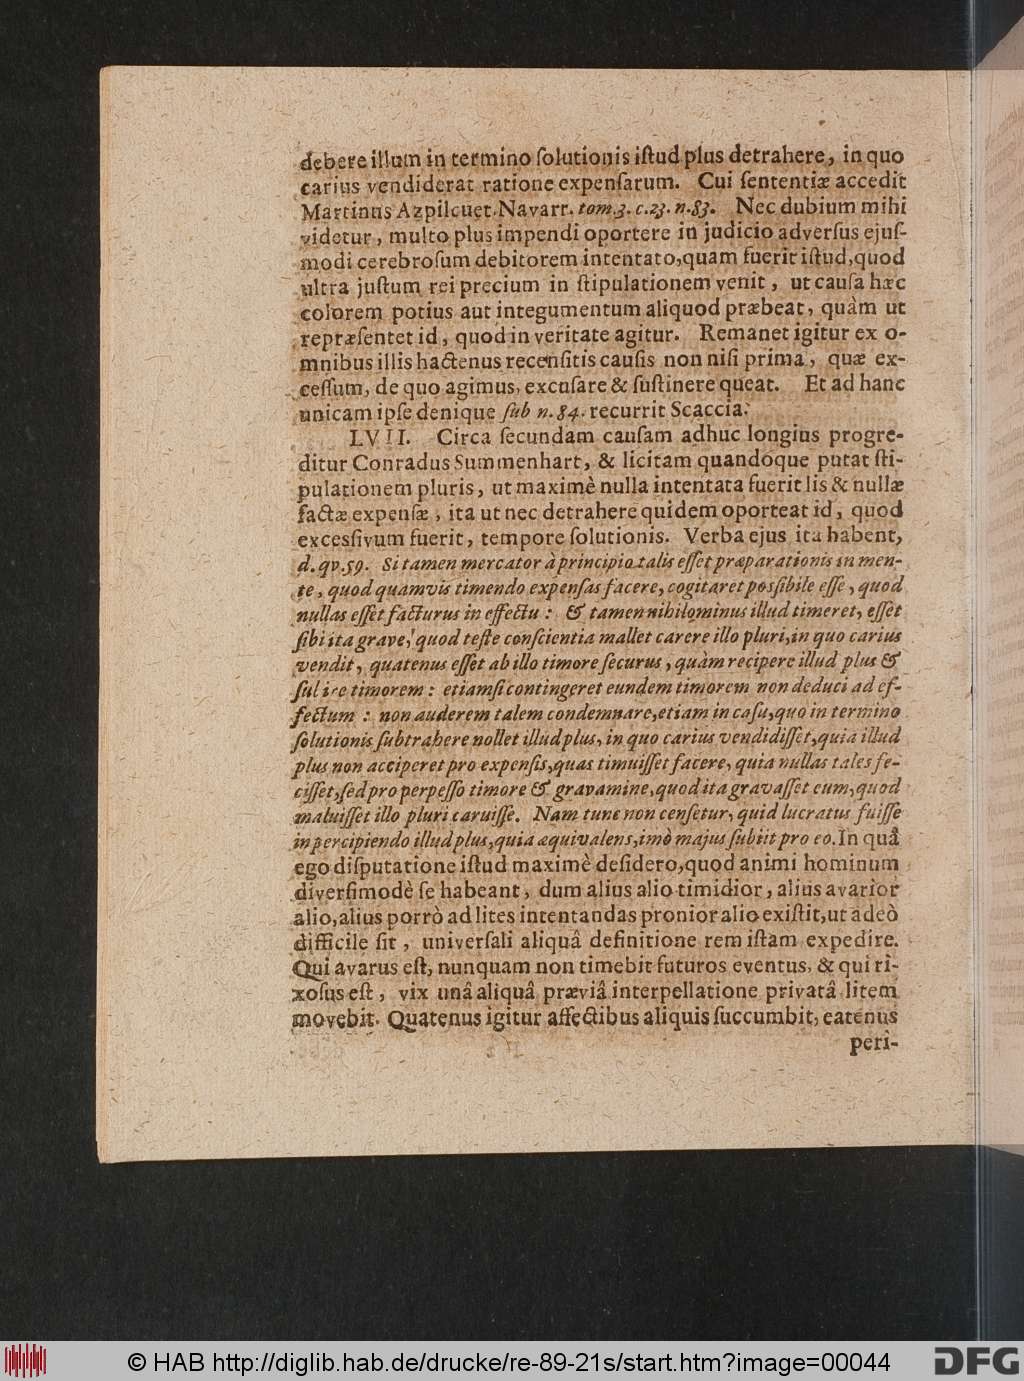 debere illum in termino ſolutionis iſtud plus detrahere, in quo
carius vendiderat ratione expenſarum. Cui ſententiæ accedit
Martinus Azpilcuet. Navarr. tom. 3. c. 23. n. 83. Nec dubium mihi
videtur, multo plus impendi oportere in judicio adverſus ejuſ-
modi cerebroſum debitorem intentato, quam fuerit iſtud, quod
ultra juſtum rei precium in ſtipulationem venit, ut cauſa hæc
colorem potius aut integumentum aliquod præbeat, quàm ut
repræſentet id, quod in veritate agitur. Remanet igitur ex o-
mnibus illis hactenus recenſitis cauſis non niſi prima, quæ ex-
ceſſum, de quo agimus, excuſare & ſuſtinere queat. Et ad hanc
unicam ipſe denique ſub n. 84. recurrit Scaccia.
LVII. Circa ſecundam cauſam adhuc longius progre-
ditur Conradus Summenhart, & licitam quandoque putat ſti-
pulationem pluris, ut maximè nulla intentata fuerit lis & nullæ
factæ expenſæ, ita ut nec detrahere quidem oporteat id, quod
excesſivum fuerit, tempore ſolutionis. Verba ejus ita habent,
d. qv. 59. Si tamen mercator à principio talis eſſet præparationis in men-
te, quod quamvis timendo expenſas facere, cogitaret posſibile eſſe, quod
nullas eſſet facturus in effectu: & tamen nihilominus illud timeret, eſſet
ſibi ita grave, quod teſte conſcientia mallet carere illo pluri, in quo carius
vendit, quatenus eſſet ab illo timore ſecurus, quàm recipere illud plus &
ſubire timorem: etiamſi contingeret eundem timorem non deduci ad ef-
fectum: non auderem talem condemnare, etiam in caſu, quo in termino
ſolutionis ſubtrahere nollet illud plus, in quo carius vendidiſſet, quia illud
plus non acciperet pro expenſis, quas timuiſſet facere, quia nullas tales fe-
ciſſet, ſed pro perpeſſo timore & gravamine, quod ita gravaſſet eum, quod
maluiſſet illo pluri caruiſſe. Nam tunc non cenſetur, quid lucratus fuiſſe
in percipiendo illud plus, quia æquivalens, imò majus ſubiit pro eo. In quâ
ego diſputatione iſtud maximè deſidero, quod animi hominum
diverſimodè ſe habeant, dum alius alio timidior, alius avarior
alio, alius porrò ad lites intentandas pronior alio exiſtit, ut adeò
difficile ſit, univerſali aliquâ definitione rem iſtam expedire.
Qui avarus eſt, nunquam non timebit futuros eventus, & qui ri-
xoſus eſt, vix unâ aliquâ præviâ interpellatione privatâ litem
movebit. Quatenus igitur affectibus aliquis ſuccumbit, eatenus
peri-
© HAB http://diglib.hab.de/drucke/re-89-21s/start.htm?image=00044
DFG